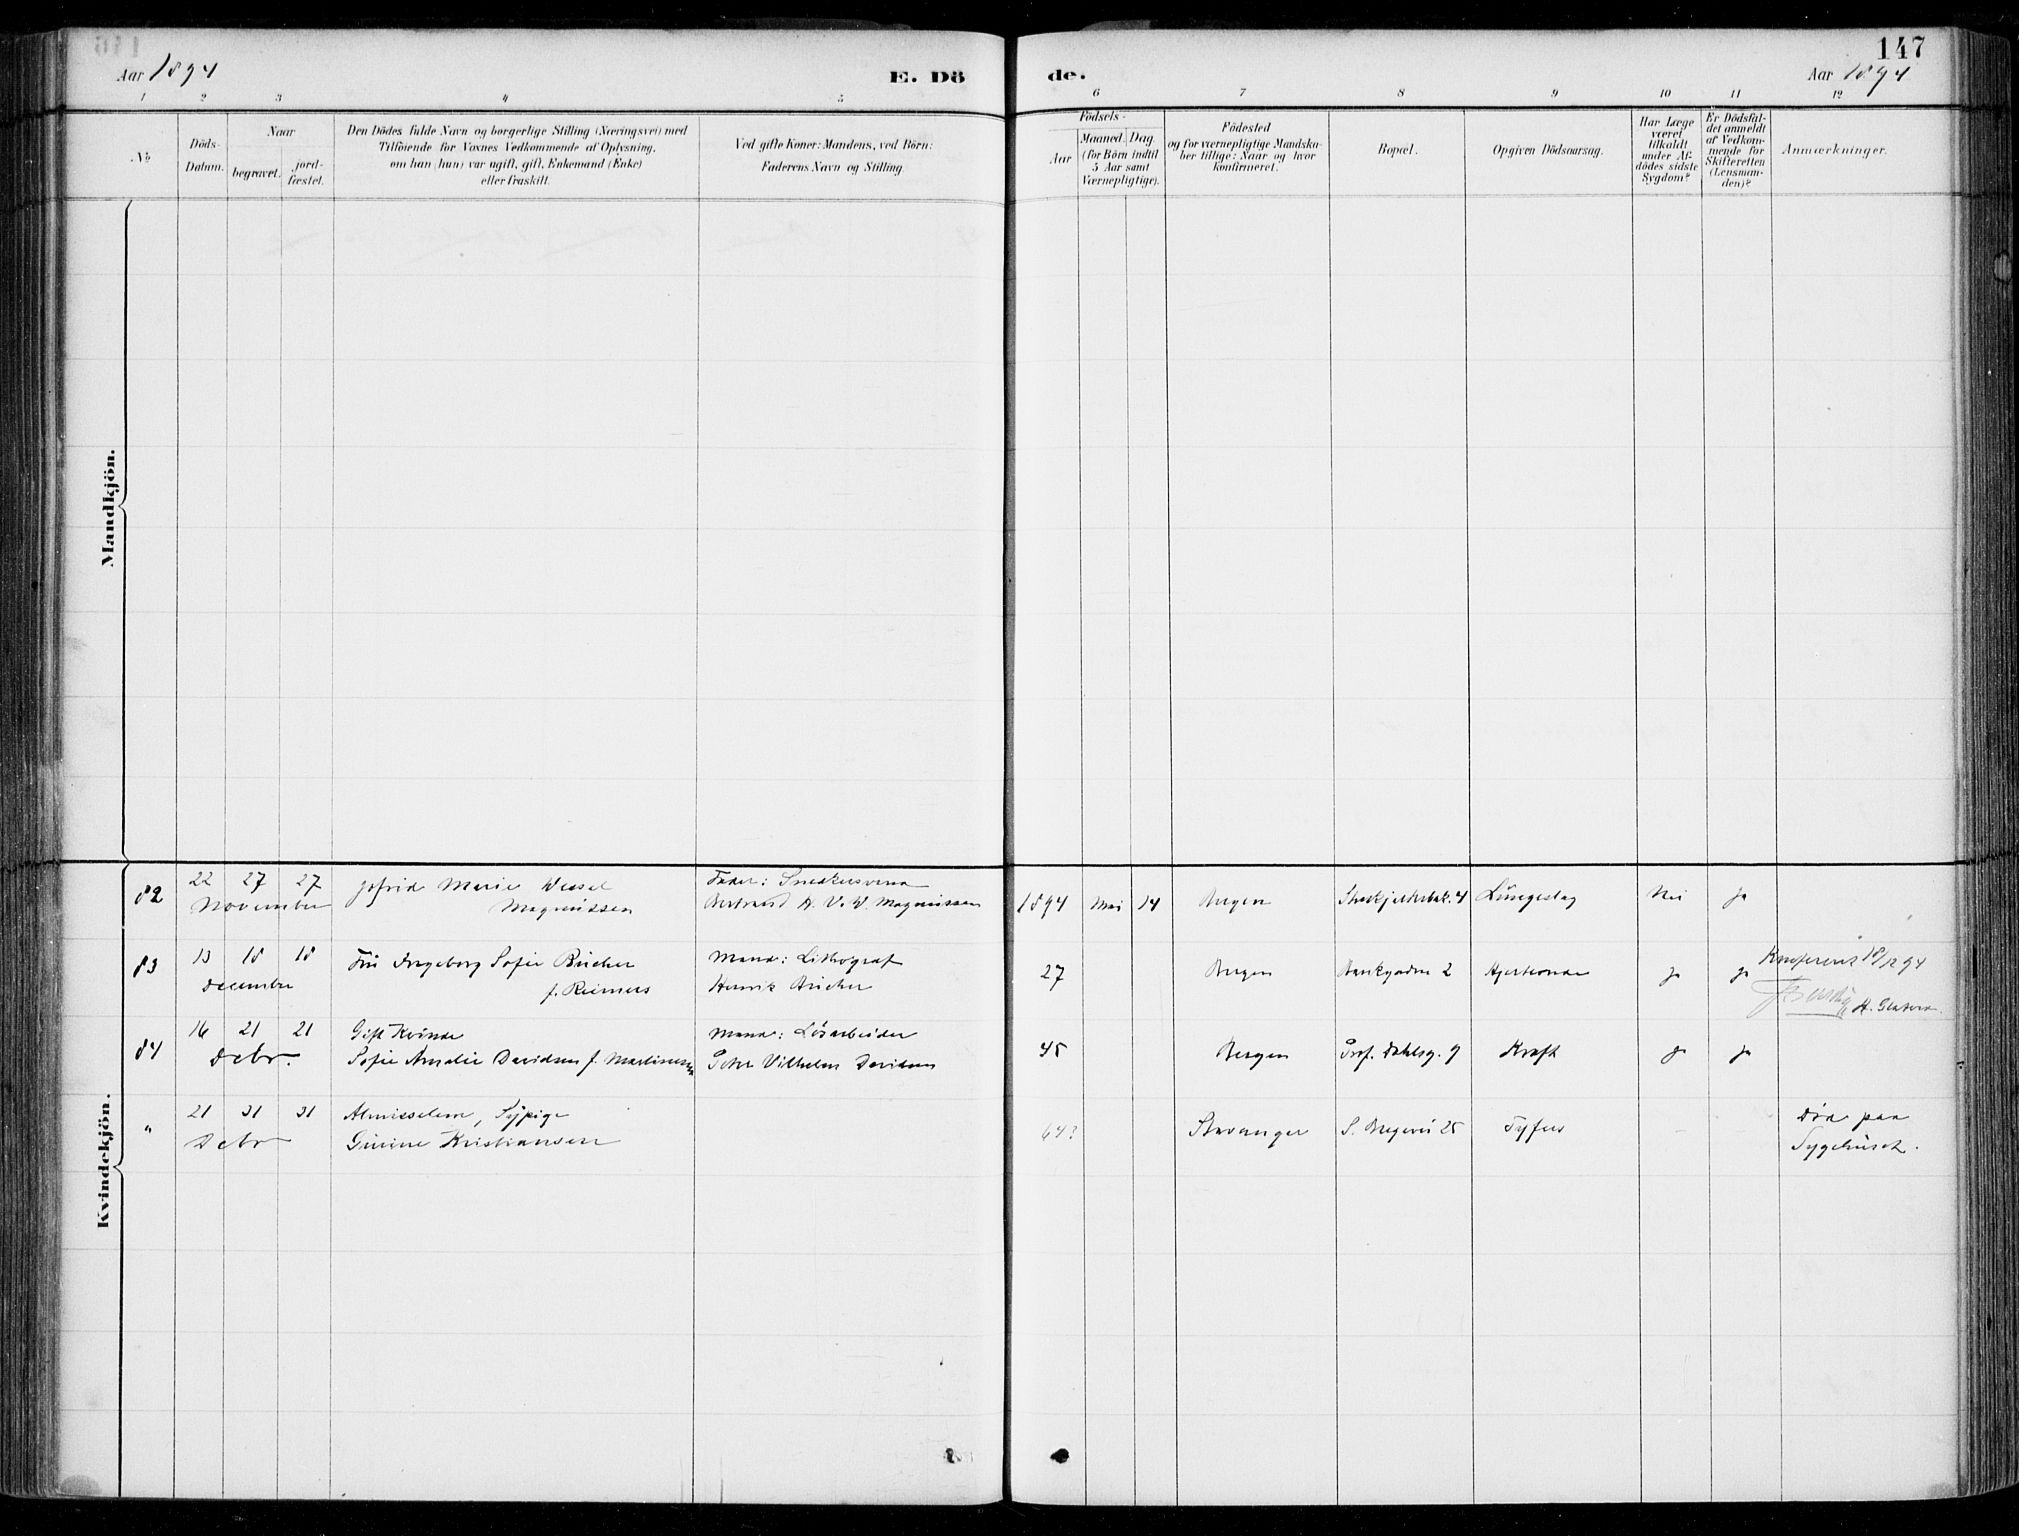 147
Aar 1894
E. Dö
de.
Aar 1894
1 2 3 4 5 6 7 8 9 10 11 12
№
Döds-
Datum.
Naar
begravet.
jord-
fæstet.
Den Dödes fulde Navn og borgerlige Stilling (Næringsvei) med
Tilföiende for Voxnes Vedkommende af Oplysning,
om han (hun) var ugift, gift, Enkemand (Enke)
eller fraskilt.
Ved gifte Koner: Mandens, ved Börn:
Faderens Navn og Stilling.
Födsels-
Aar
Maaned. Dag.
(for Börn indtil
5 Aar samt
Værnepligtige).
Födested
og for værnepligtige Mandska-
ber tillige: Naar og hvor
konfirmeret.
Bopæl.
Opgiven Dödsaarsag.
Har Læge
været
tilkaldt
under Af-
dödes sidste
Sygdom?
Er Dödsfal-
det anmeldt
af Vedkom-
mende for
Skifteretten
(Lensman-
den)?
Anmærkninger.
Mandkjön.
Kvindekjön.
82
22 27 27
November
Marie Wessel
Magnussen
Fader: Snedkersvend
Bertrand A. V. W. Magnussen
1894 Mai 14 Bergen Lungeslag Nei ja
83
13 18 18
December
Fru Ingeborg Sofie Bucher
f. Reimers
Mand: Lithograf
Henrik Bucher
27 Bergen 2 ja ja
18/12 94
84
16 21 21
Decbr.
Gift Kvinde
Sofie Amalie Davidsen f. Martinussen
Mand: Løsarbeider
Peter Vilhelm Davidsen
45 Bergen Prof. Dahlsg. 9 Kræft ja ja
"
21 31 31
Decbr
Almisselem, Sypige
Gurine Kristiansen
64? Stavanger 25 Tyfus -
Død paa
Sygehuset.